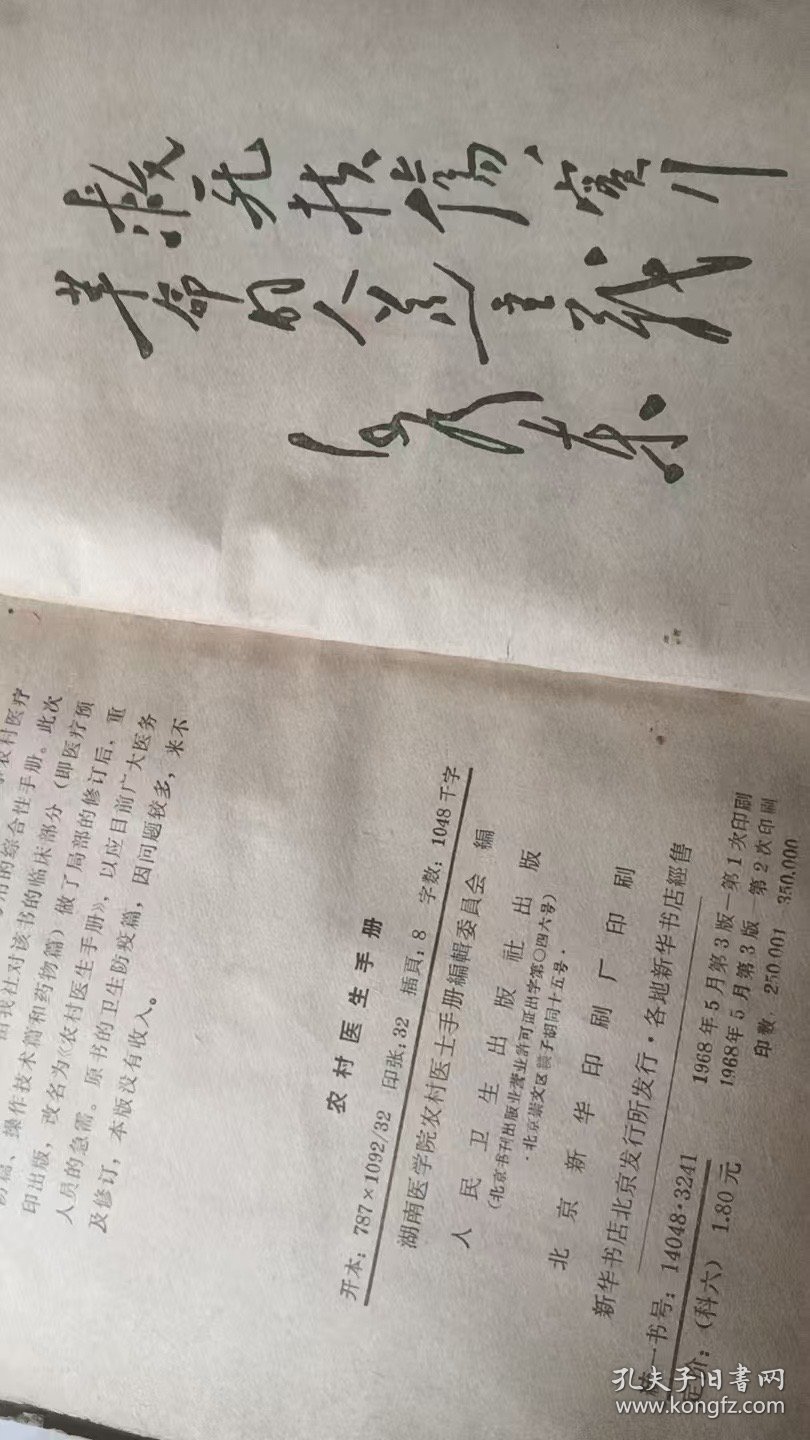 救死扶伤,实行
革命的人道主义
毛泽东
农村医疗
用的综合性手册。此次
由我社对该书的临床部分（即医疗预
防篇、操作技术篇和药物篇）做了局部的修订后，重
印出版，改名为《农村医生手册》，以应目前广大医务
人员的急需。原书的卫生防疫篇，因问题较多，来不
及修订，本版没有收入。
农村医生手册
开本：787×1092/32 印张：32 插頁：8 字数：1048千字
湖南医学院农村医士手册編輯委員会 編
人民卫生出版社出版
（北京书刊出版业营业許可証出字第〇四六号）
·北京崇文区 子胡同十五号·
北京新华印刷厂印刷
新华书店北京发行所发行·各地新华书店經售
统一书号：14048·3241
定价：（科六）1.80元
1968年5月第3版—第1次印刷
1968年5月第3版 第2次印刷
印数：250,001 350,000
孔夫子旧書网
www.kongfz.com